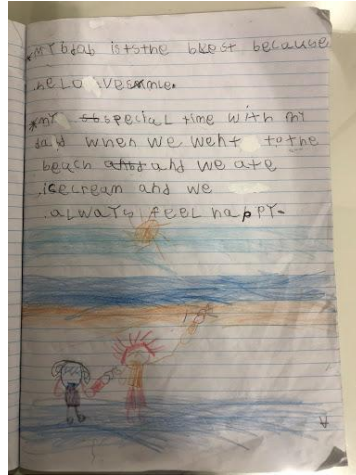 *MY bdab iststhe bkest because
.heLO vesmme.
*MY sb special time with MY
dayd when we went to the
beach anbd and we ate
.icecream and we
.aLWaYs feeL haPPY.